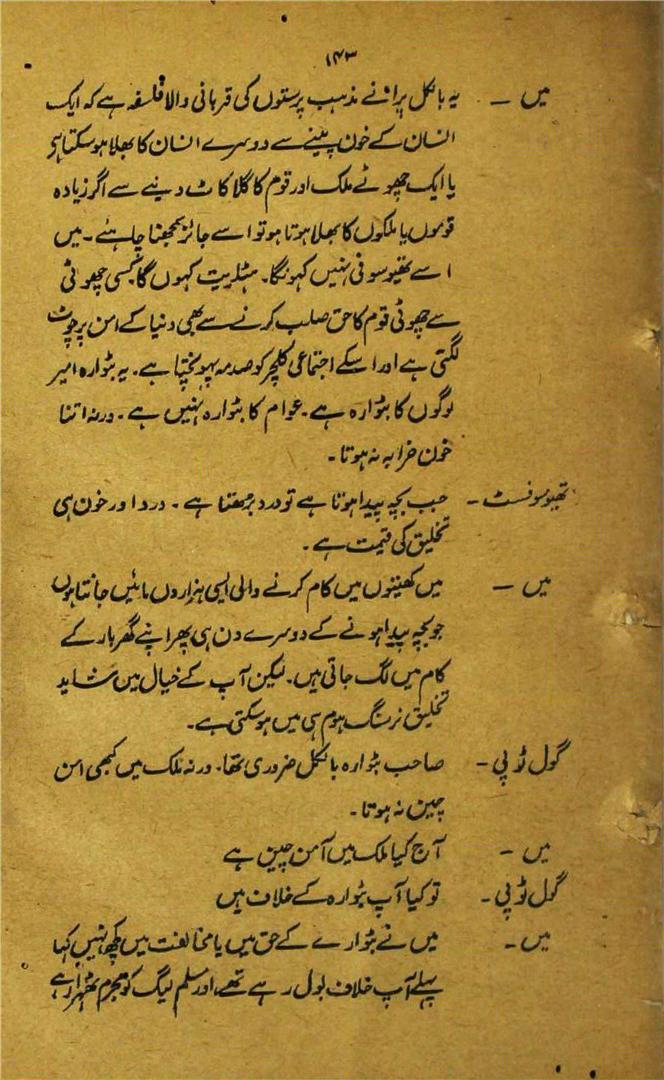 ۱۴۳
میں — یہ بالکل پرانے مذہب پرستوں کی قربانی والا فلسفہ ہے کہ ایک
انسان کے خون پینے سے دوسرے انسان کا بھلا ہو سکتا ہی
یا ایک چھوٹے ملک اور قوم کا گلا کاٹ دینے سے اگر زیادہ
قوموں یا ملکوں کا بھلا ہوتا ہو تو اسے جائز سمجھنا چاہئے ۔ میں
اسے تھیوسوفی نہیں کہونگا ۔ ہٹلریت کہوں گا کسی چھوٹی
سے چھوٹی قوم کا حق صلب کرنے سے بھی دنیا کے امن پر چوٹ
لگتی ہے اور اسکے اجتماعی کلچر کو صدمہ پہونچتا ہے ۔ یہ بٹوارہ امیر
لوگوں کا بٹوارہ ہے ۔ عوام کا بٹوارہ نہیں ہے ۔ ورنہ اتنا
خون خرابہ نہ ہوتا ۔
تھیوسوفسٹ — جب بچہ پیدا ہوتا ہے تو درد بڑھتا ہے ۔ درد اور خون ہی
تخلیق کی قیمت ہے ۔
میں — میں کھیتوں میں کام کرنے والی ایسی ہزاروں مائیں جانتا ہوں
جو بچہ پیدا ہونے کے دوسرے دن ہی پھر اپنے گھر بار کے
کام میں لگ جاتی ہیں ۔ لیکن آپ کے خیال میں شاید
تخلیق نرسنگ ہوم ہی میں ہو سکتی ہے ۔
گول ٹوپی — صاحب بٹوارہ بالکل ضروری تھا ۔ ورنہ ملک میں کبھی امن
چین نہ ہوتا ۔
میں — آج کیا ملک میں امن چین ہے
گول ٹوپی — تو کیا آپ بٹوارہ کے خلاف ہیں
میں — میں نے بٹوارے کے حق میں یا مخالفت میں کچھ نہیں کہا
پہلے آپ خلاف بول رہے تھے اور مسلم لیگ کو مجرم ٹھہرا رہے